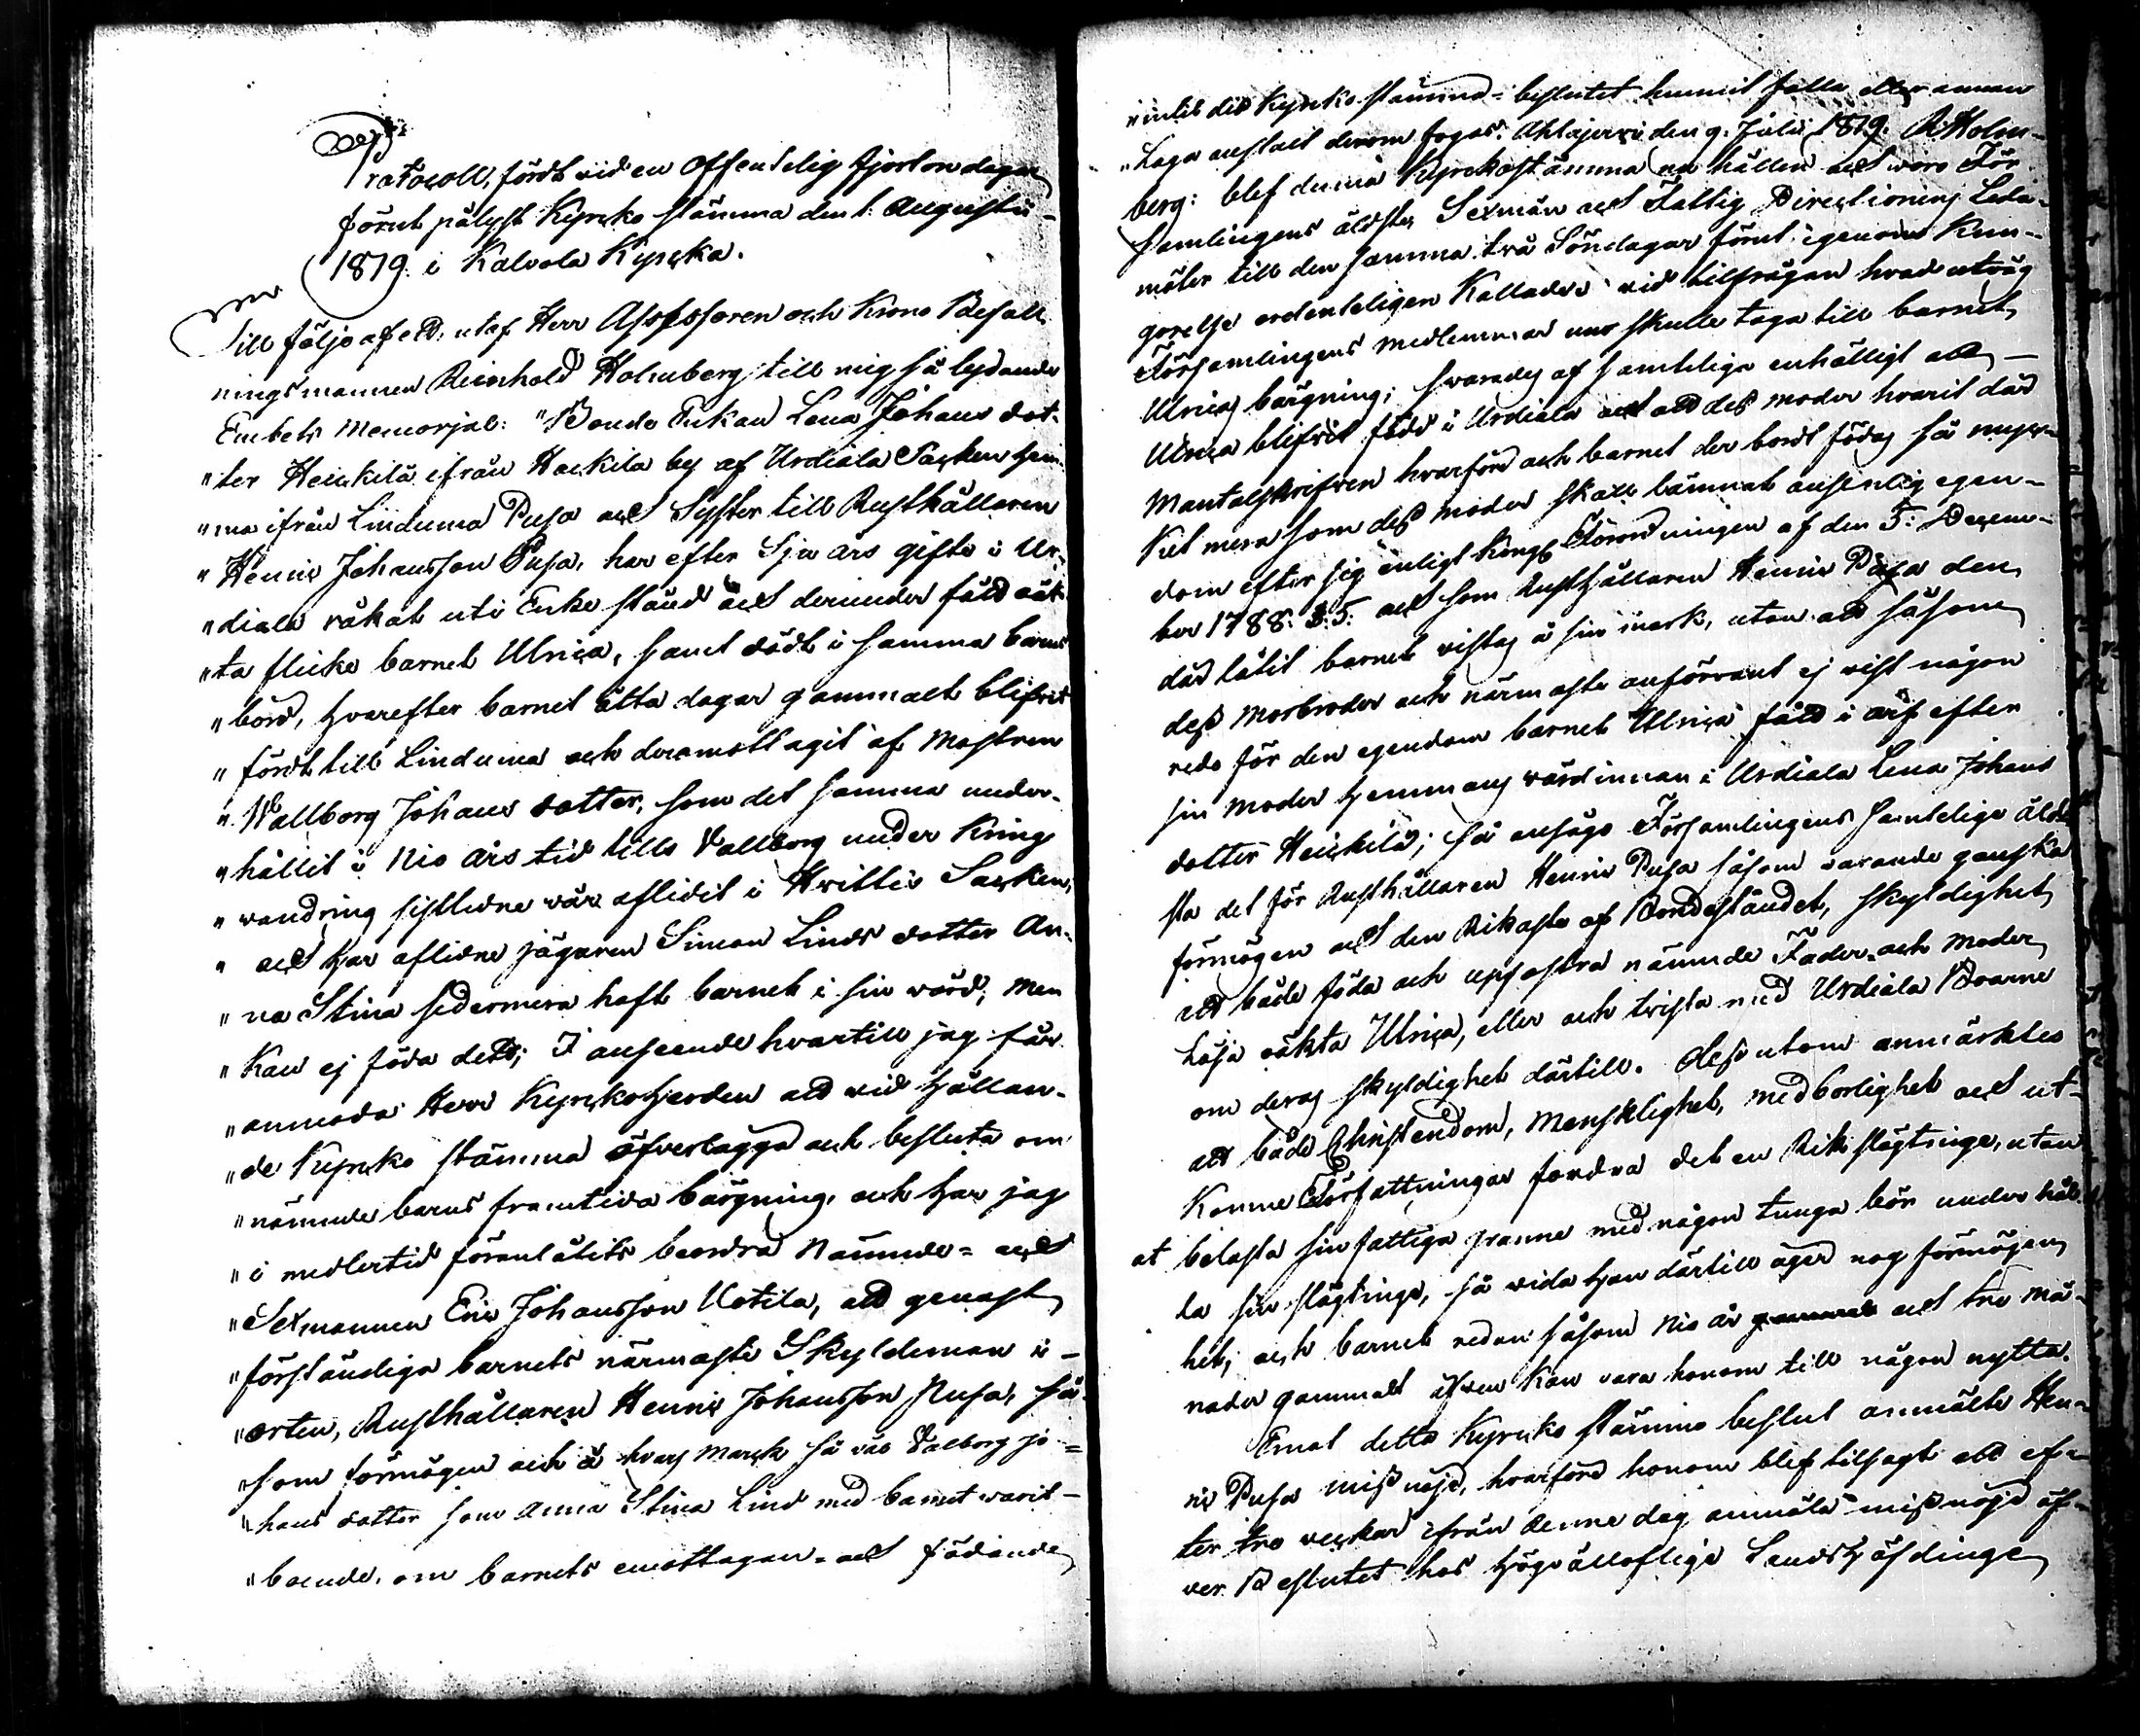 Protocoll, fördt vid en offentelig fjorton dagar
förut pålyst Kyrko stämma den 1. Augusti
1819. i Kalvola Kyrcka.
Till följe af ett, utaf Herr Assessoren och Krono Befall
ningsmannen Reinhold Holmberg till mig så lydande
Embets Memorjal: "Bonde Enkan Lena Johans dot-
"ter Heickilä ifrån Hackila by af Urdiala Sacken hem-
"ma ifrån Linduma Pusa och Syster till Rusthållaren
"Henric Johansson Pusa, har efter Sju års gifte i Ur-
"diala råkat uti Enke stånd och derunder född oäk-
"ta flicke barnet Ulrica, samt dödt i samma barns
"börd, hvarefter barnet åtta dagar gammalt blifvit
"fördt till Linduma och deremottagit af Mostren
"Wallborg Johans dotter, som det samma under-
"hållit i Nio års tid tills Vallborg under Kring
"vandring sistledne vår aflidit i Hvittis Sacken,
"och har aflidne jägaren Simon Linds dotter An-
"na Stina sedermera haft barnet i sin vård; Men
"Kan ej föda dett; I anseende hvartill jag får
"anmoda Herr Kyrckoherden att vid hållan-
"de Kyrcko stämma öfverlägga och besluta om
"nämnde barns framtida bärgning, och har jag
"i medlertid föranlåtits beordra Nämnde= och
"Sexmannen Eric Johansson Uotila, att genast
"förständiga barnets närmaste Skyldeman i
"orten, Rusthållaren Henric Johansson Pusa, så-
"som förmögen och å hvars Marck så väl Valborg Jo=
"hans dotter som Anna Stina Lind med barnet varit
"boende, om barnets emottagan= och födande
"intil dess Kyrcko stämmo= beslutet hunnit falla eller annan
"Laga anstalt derom fogas. Ahlajervi den 9. Julii 1819. R Holm-
berg: blef denna Kyrckostämma nu hållen och woro För-
samlingens äldste, Sexmän och Fattig Directionens Leda-
möter till den samma två Söndagar förut igenom Kun-
görelse ordenteligen Kallade: vid tilfrågan hvad utväg
Församlingens Medlemmar nu skulle taga till barnet
Ulricas bärgning; svarades af samtelige enhälligt att
Ulrica blifvit född i Urdiala och att dess moder hvarit där
Mantalskrifven hvarföre och barnet der bordt födas så myc-
Ket mera som dess moder skall lämnat ansenlig egen-
dom efter sig enligt Kongl Förordningen af den 5: Decem-
ber 1788. §.5. och som Rusthållaren Henric Pusa den
där låtit barnet vistas å sin mark, utan att såsom
dess Morbroder och närmaste anförvant ej vist någon
redo för den egendom barnet Ulrica född i arf efter
sin Moder Hemmans värdinnan i Urdiala Lena Johans
dotter Heickilä; så ansågo Församlingens Samtelige äld-
sta det för Rusthållaren Henric Pusa såsom varande ganska
förmögen och den Rikaste af Bondeståndet, skyldighet
att både föda och upfostra nämnde Fader= och Moder
Lösa oäkta Ulrica, eller och tvista med Urdiala Boarne
om deras skyldighet därtill. Dess utom anmärktes
att både Christendom, Mensklighet, medborlighet och ut-
Komne Författningar fordra det en Rik slägtinge, utan
at belasta sin fattiga granne med någon tunga bör under hål-
la sin slägtinge, så vida han därtill äger nog förmögen
het; och barnet redan såsom Nio år och tre må-
nader gammalt äfven Kan vara honom till någon nytta.
Emot detta Kyrcko stämmo beslut anmälte Hen-
ric Pusa missnöje, hvarföre honom blef tilsagt att ef-
ter tre veckar ifrån denne dag anmäla missnöje öf-
ver Beslutet hos Högvällofliga Landshöfdinge